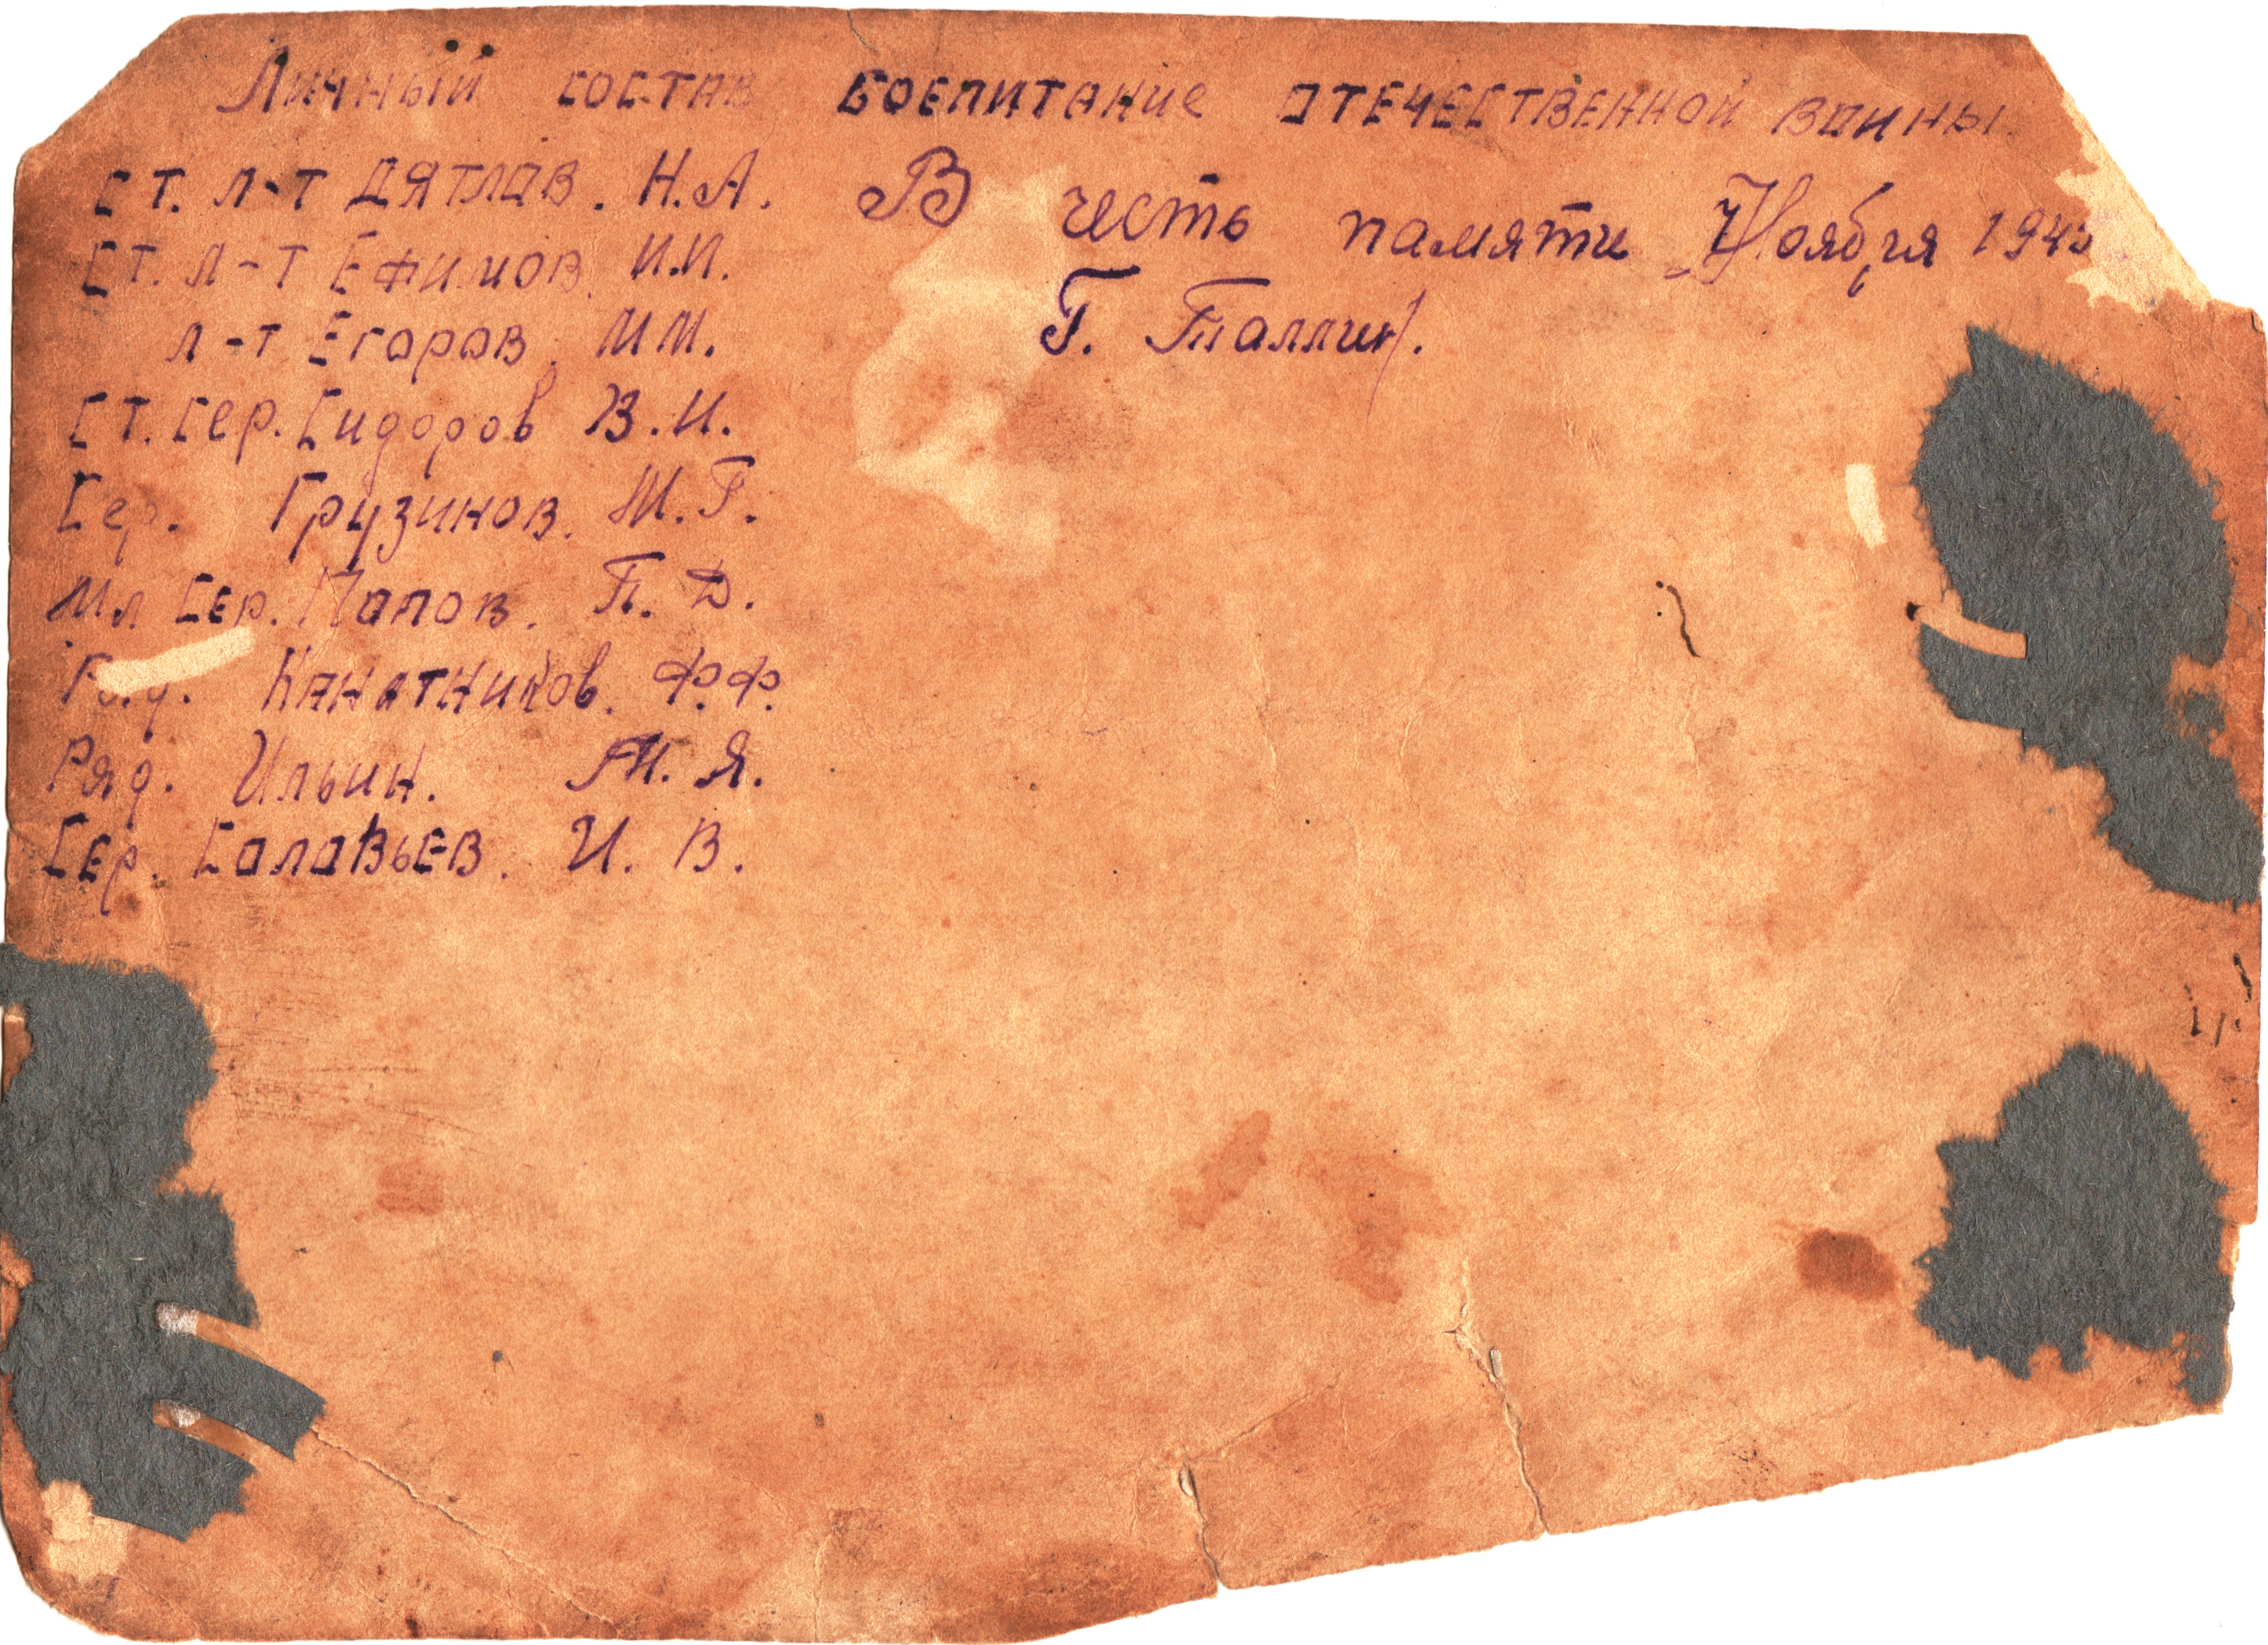 Личный состав боепитание отечественной воины.
Ст. л-т Дятлов. Н.А.
Ст. л-т Ефимов. И.И.
л-т Егоров. М.М.
Ст. Сер. Сидоров В.И.
Сер. Грузинов. М.Г.
Мл Сер. Попов. П.Д.
Канатников. Ф.Ф.
Ряд. Ильин. М.Я.
Сер. Соловьев. И.В.
В честь памяти Ноября
Г. Таллин.